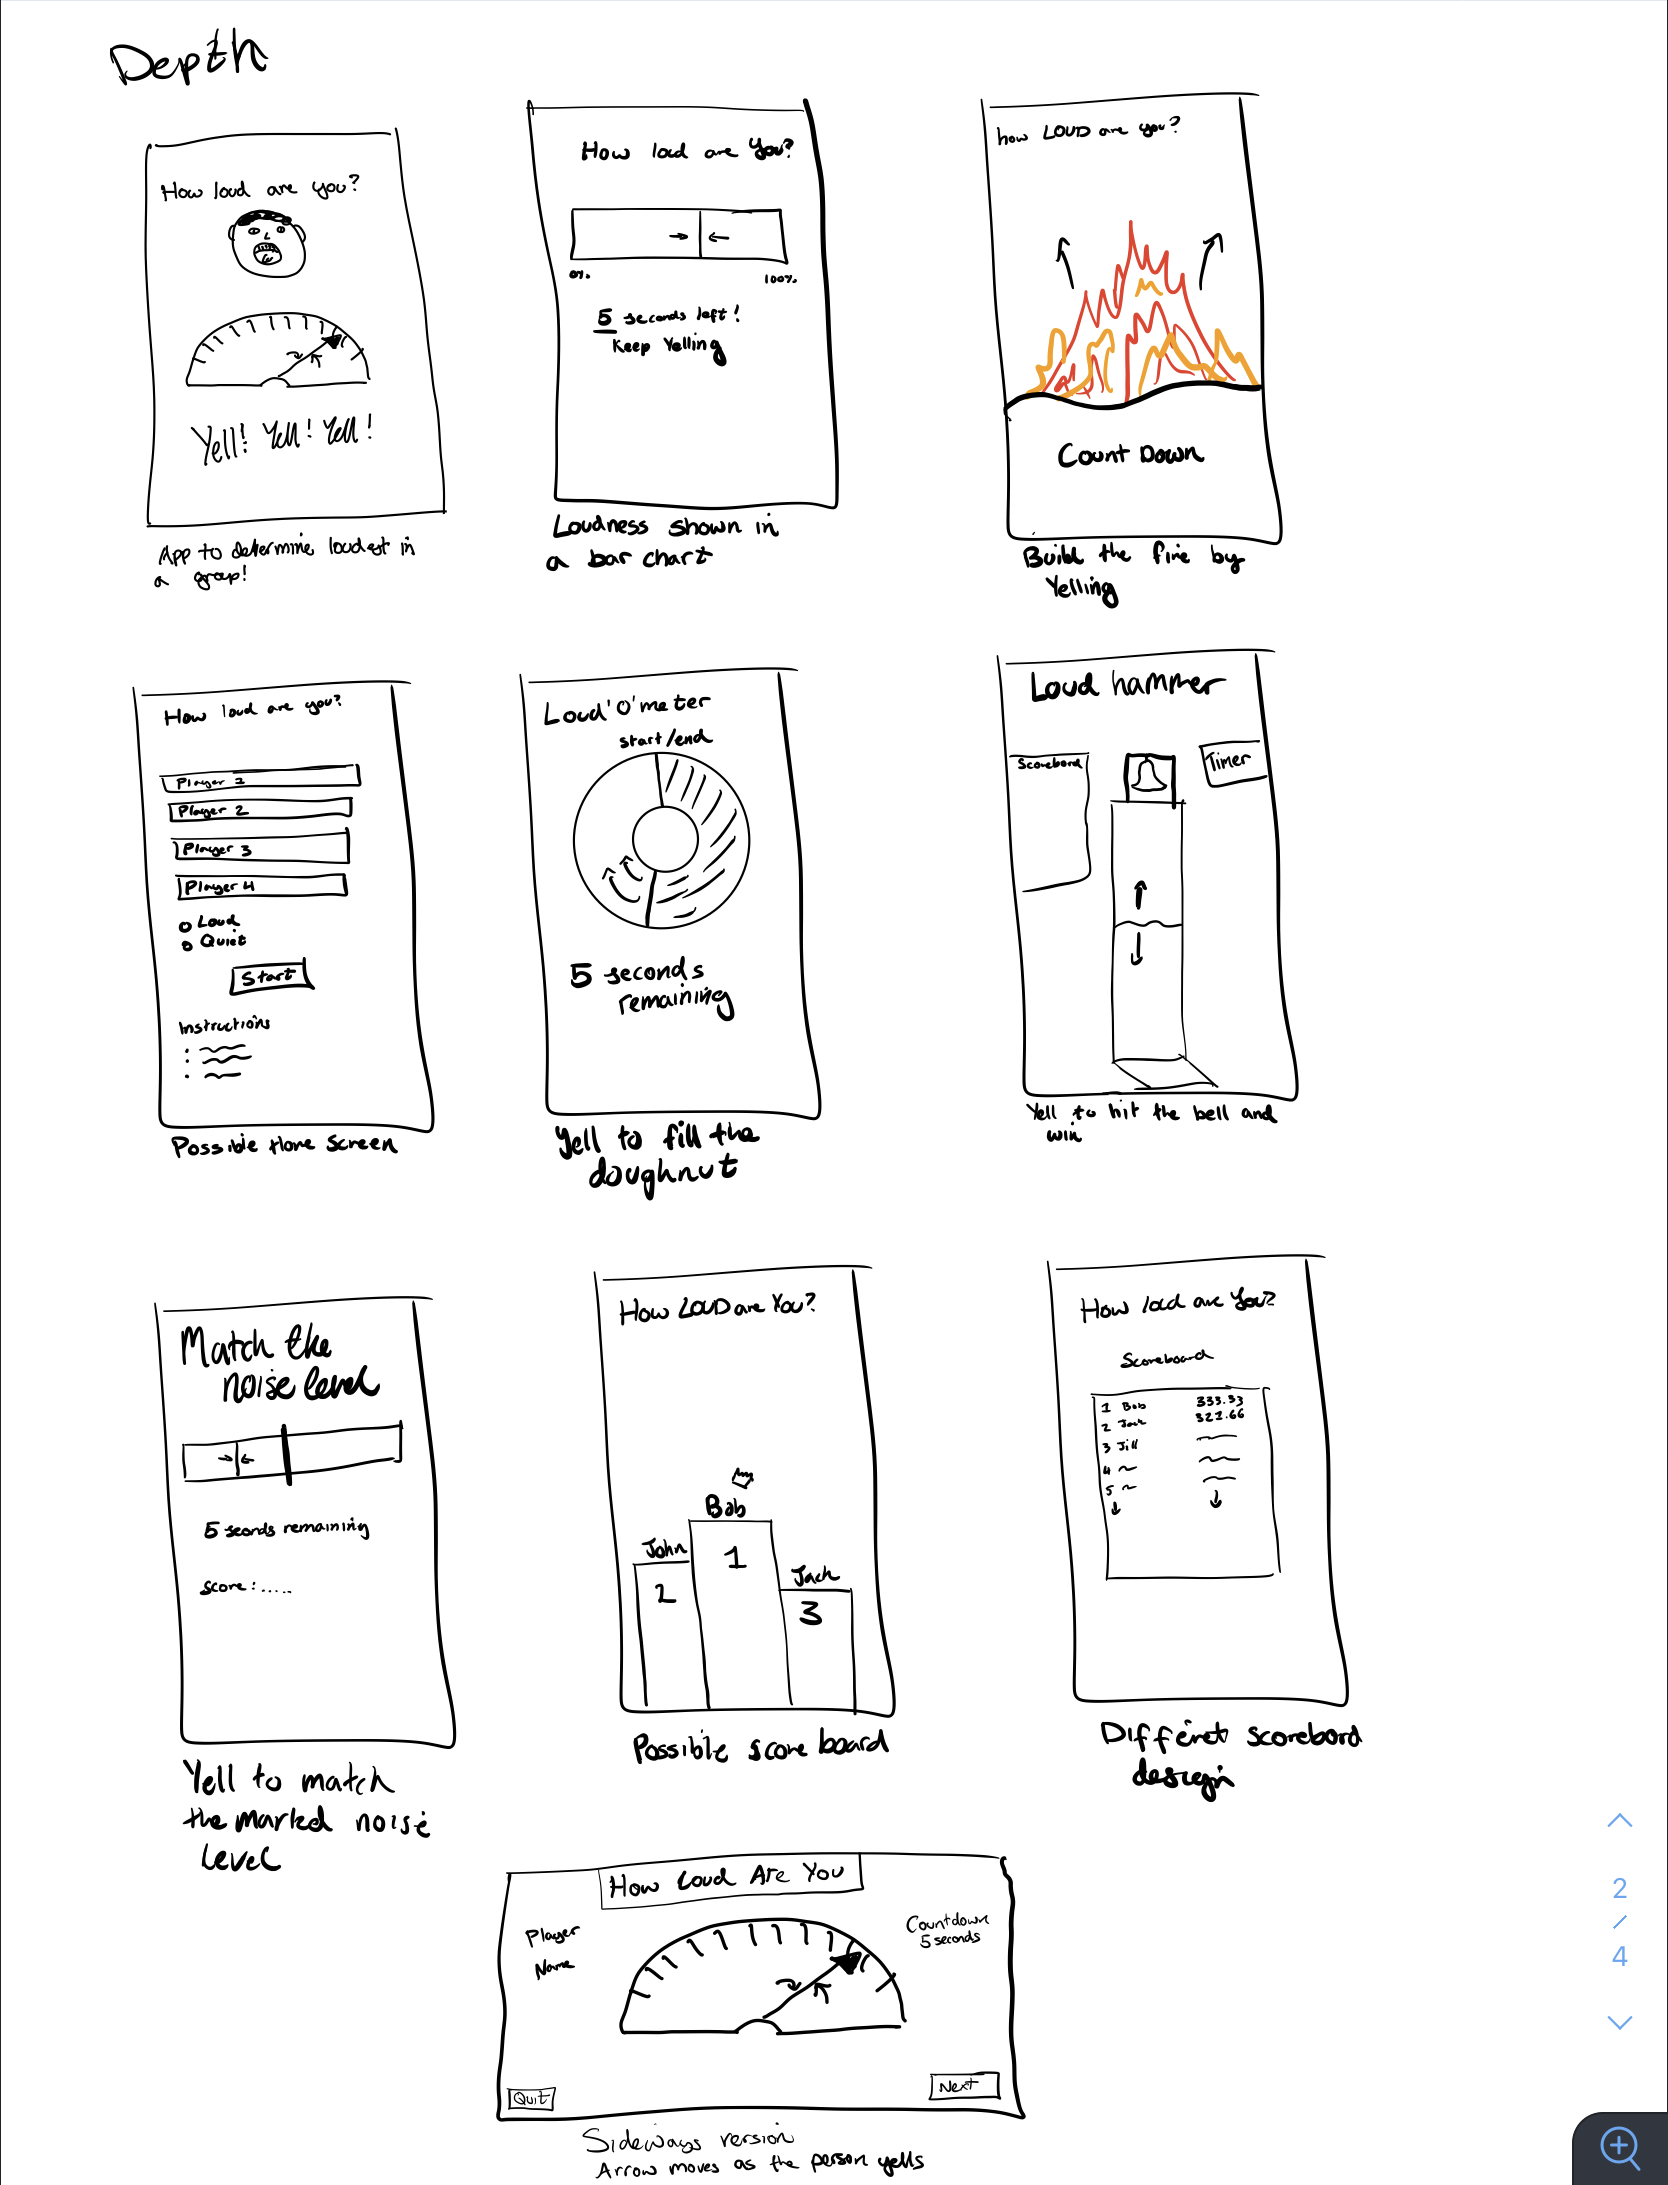 Depth
How loud are you?
Yell! Yell! Yell!
App to determine loudest in
a group!
How loud are you?
0%.
100%.
5 seconds left!
Keep Yelling
Loudness shown in
a bar chart
how LOUD are you?
Count Down
Build the fire by
Yelling
How loud are you?
Player 1
Player 2
Player 3
Player 4
Loud
Quiet
Start
Instructions
Possible Home Screen
Loud'O'meter
start/end
5 seconds
remaining
Yell to fill the
doughnut
Loud hammer
Scorebord
Timer
Yell to hit the bell and
win
Match the
noise level
5 seonds remaining
Score:.....
Yell to match
the marked noise
level
How LOUD are You?
Bob
John
1
2
Jack
3
Possible score board
How loud are You?
Scoreboard
1 Bob 333.33
2 Jack 321.66
3 Jill
4
5
Differet scorebord
design
How Loud Are You
Player
Name
Countdown
5 seconds
Quit
Next
Sideways version
Arrow moves as the person yells
2
/
4